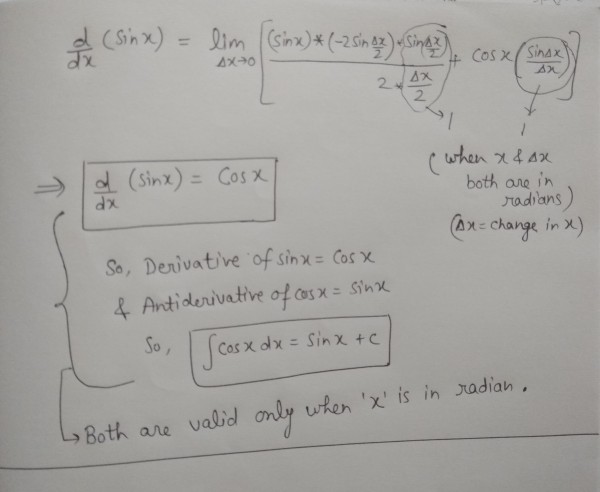 d/dx (sinx) = lim Δx→0 [ (sinx)*(-2sin Δx/2)*(sin Δx/2) / 2*Δx/2 + cosx (sinΔx/Δx) ]
1 1
(when x & Δx
both are in
radians)
(Δx = change in x)
⇒ d/dx (sinx) = Cosx
So, Derivative of sinx = Cosx
& Antiderivative of cosx = Sinx
So, ∫cosx dx = Sinx + c
Both are valid only when 'x' is in radian.